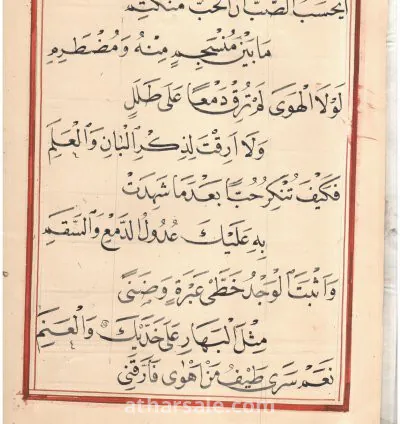 ايحسب الصب ان الحب منكتم
ما بين منسجم منه ومضطرم
لولا الهوى لم ترق دمعا على طلل
ولا ارقت لذكر البان والعلم
فكيف تنكر حبا بعد ما شهدت
به عليك عدول الدمع والسقم
واثبت الوجد خطي عبرة وضنى
مثل البهار على خديك والعنم
نعم سرى طيف من اهوى فارقني
atharsale.com